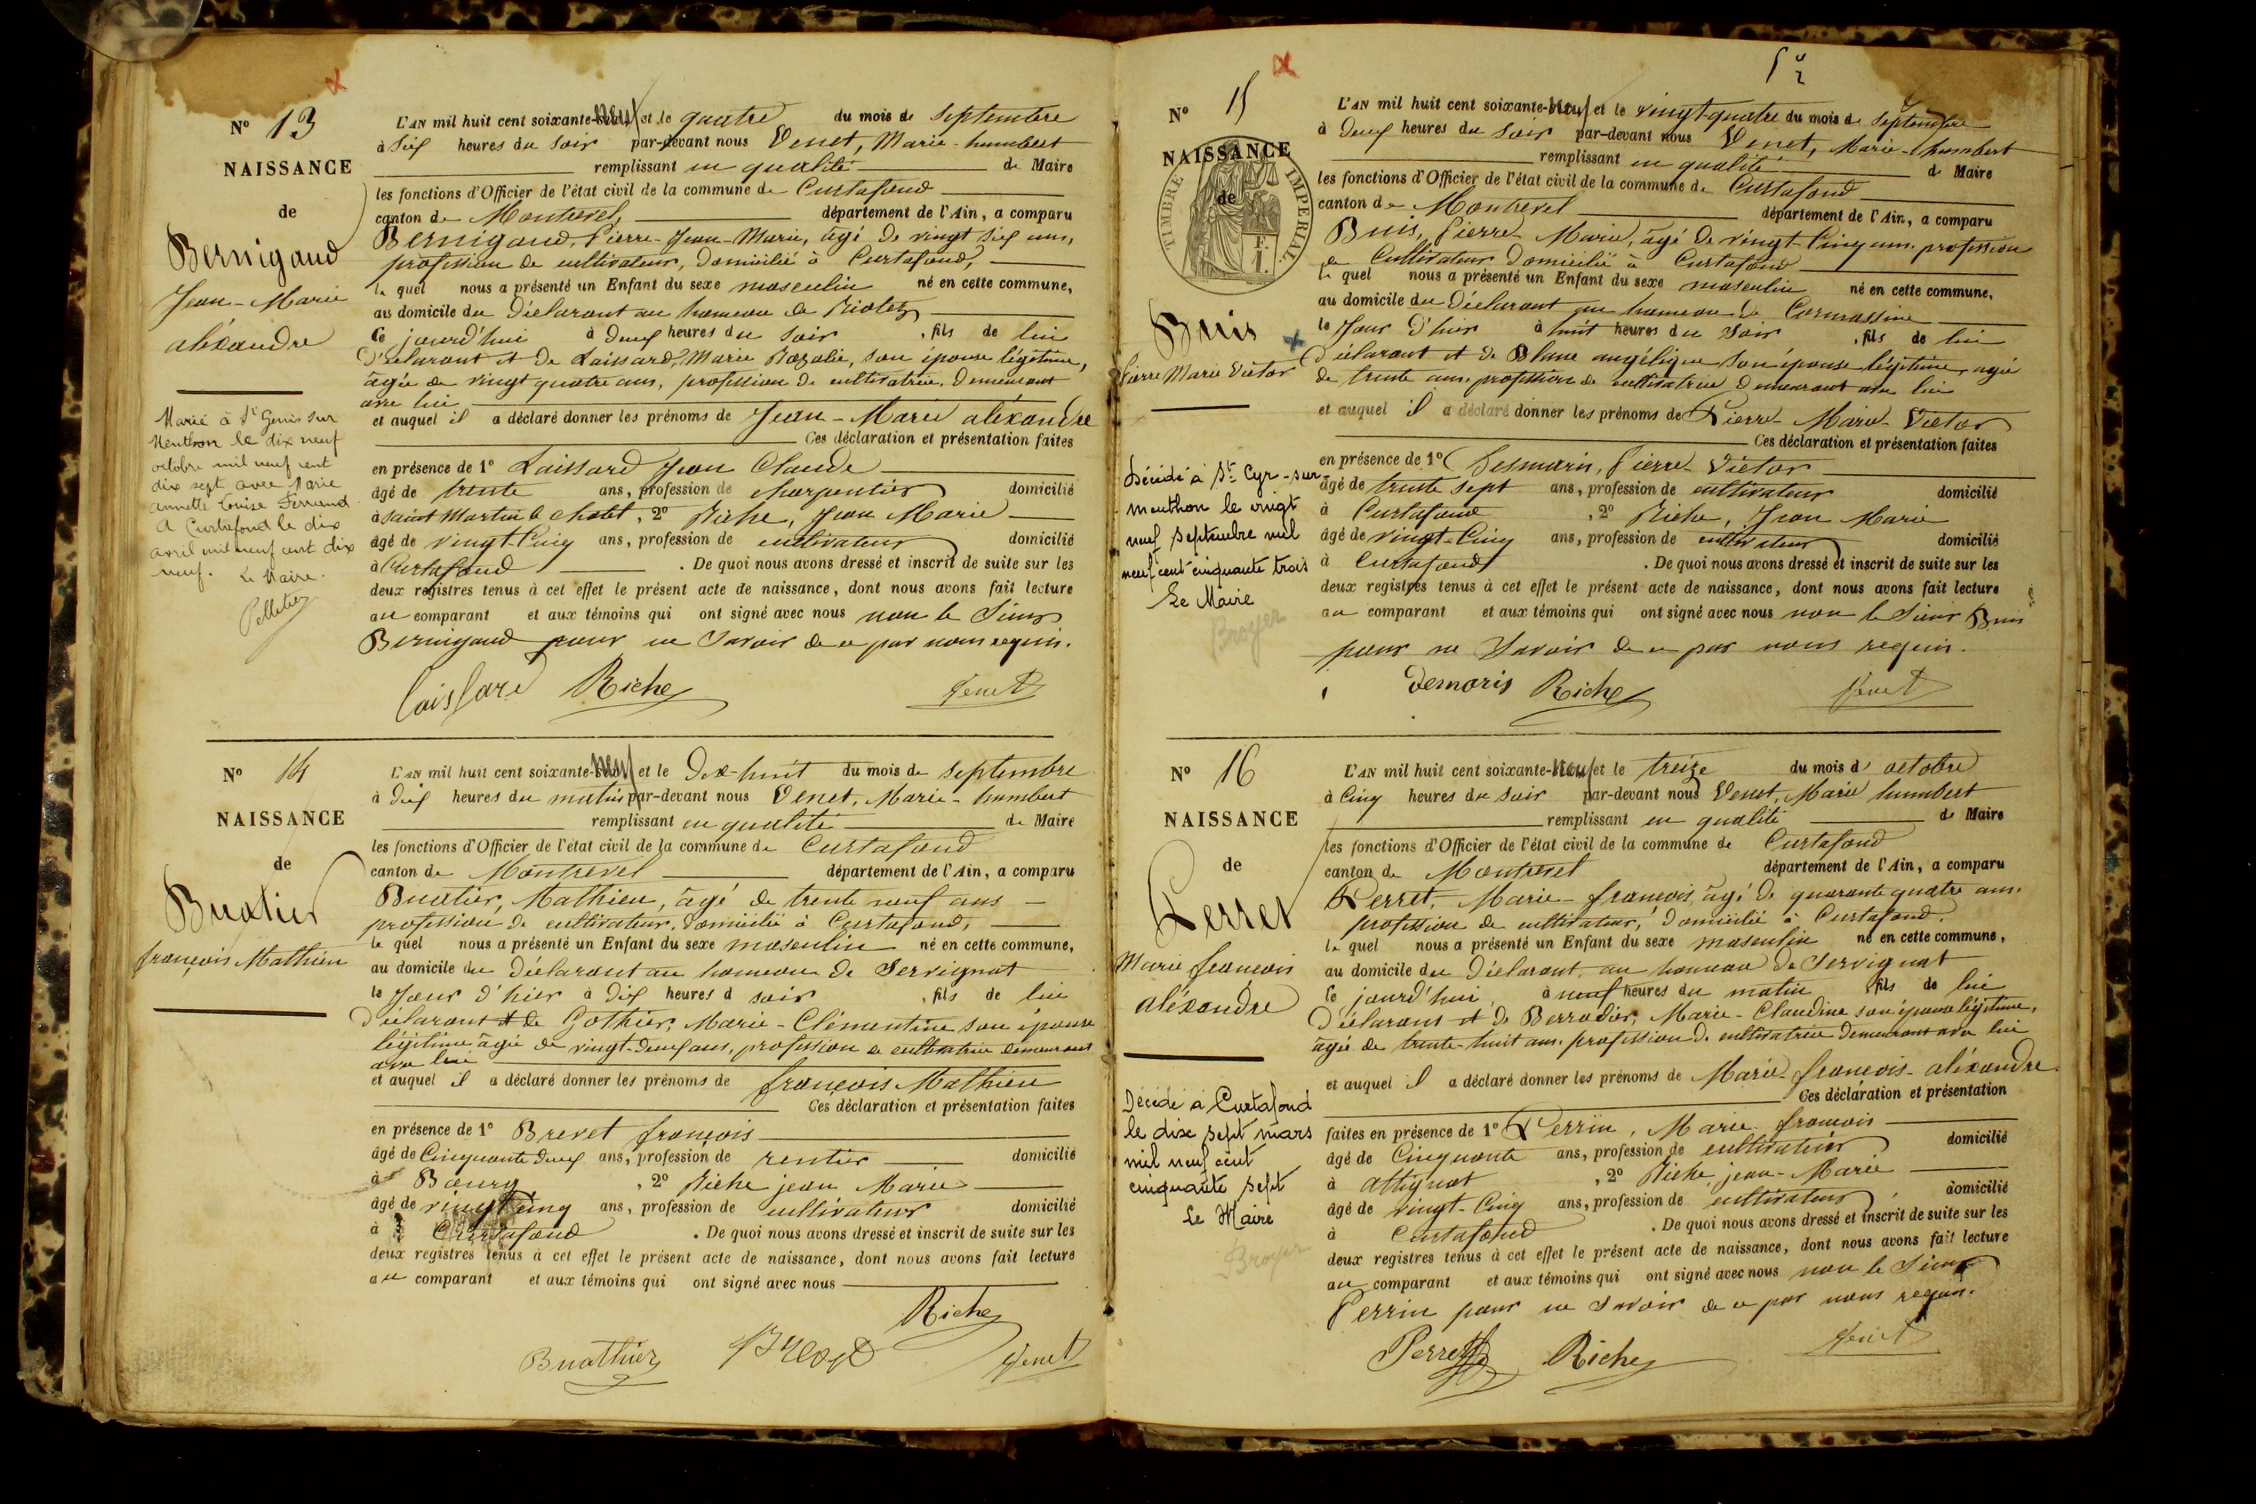 N° 13
NAISSANCE
de
Bernigaud
Jean-Marie
aléxandre
Marié à St Genis sur
Menthon le dix neuf
octobre mil neuf cent
dix sept avec Marie
annette Louise Ferrand
A Curtafond le dix
avril mil neuf cent dix
neuf. Le Maire.
Pelletier
L'AN mil huit cent soixante-neuf et le quatre du mois de Septembre
à Six heures du Soir par-devant nous Venet, Marie-humbert
remplissant en qualité de Maire
les fonctions d'Officier de l'état civil de la commune de Curtafond
canton de Montrevel, département de l'Ain, a comparu
Bernigaud, Pierre-Jean-Marie, âgé de vingt Six ans,
profession de cultivateur, domicilié à Curtafond,
le quel nous a présenté un Enfant du sexe masculin né en cette commune,
au domicile du Déclarant au hameau de
Ce jourd'hui à deux heures du Soir, fils de lui
Déclarant et de Laissard, Marie Rozalie, son épouse légitime,
âgée de vingt quatre ans, profession de cultivatrice, demeurant
avec lui
et auquel il a déclaré donner les prénoms de Jean-Marie aléxandre
Ces déclaration et présentation faites
en présence de 1° Laissard Jean Claude
âgé de trente ans, profession de charpentier domicilié
à Saint Martin le chatel, 2° Riche, Jean Marie
âgé de vingt Cinq ans, profession de cultivateur domicilié
à Curtafond. De quoi nous avons dressé et inscrit de suite sur les
deux registres tenus à cet effet le présent acte de naissance, dont nous avons fait lecture
au comparant et aux témoins qui ont signé avec nous non le Sieur
Bernigaud pour ne Savoir de ce par nous requis.
Laissard Riche Venet
N° 14
NAISSANCE
de
Buatier
françois Mathieu
L'AN mil huit cent soixante-neuf et le Dix-huit du mois de Septembre
à dix heures du matin par-devant nous Venet, Marie-humbert
remplissant en qualité de Maire
les fonctions d'Officier de l'état civil de la commune de Curtafond
canton de Montrevel département de l'Ain, a comparu
Buatier, Mathieu, âgé de trente neuf ans
profession de cultivateur, domicilié à Curtafond,
le quel nous a présenté un Enfant du sexe masculin né en cette commune,
au domicile du Déclarant au hameau de Servignat
le Jour d'hier à dix heures d soir, fils de lui
Déclarant et de Gothier, Marie-Clémentine son épouse
légitime âgée de vingt-deux ans, profession de cultivatrice demeurant
avec lui
et auquel il a déclaré donner les prénoms de françois Mathieu
Ces déclaration et présentation faites
en présence de 1° Brevet françois
âgé de Cinquante deux ans, profession de rentier domicilié
à Bourg, 2° Riche jean Marie
âgé de vingt cinq ans, profession de cultivateur domicilié
à Curtafond. De quoi nous avons dressé et inscrit de suite sur les
deux registres tenus à cet effet le présent acte de naissance, dont nous avons fait lecture
au comparant et aux témoins qui ont signé avec nous
Riche
Buathier Venet
N° 15
TIMBRE IMPERIAL
NAISSANCE
de
Buis
Pierre Marie Victor
Décédé à St Cyr-sur-
menthon le vingt
neuf Septembre mil
neuf cent cinquante trois
Le Maire
Broyer
L'AN mil huit cent soixante-neuf et le vingt-quatre du mois de Septembre
à deux heures du Soir par-devant nous Venet, Marie-humbert
remplissant en qualité de Maire
les fonctions d'Officier de l'état civil de la commune de Curtafond
canton de Montrevel département de l'Ain, a comparu
Buis, Pierre Marie, âgé de vingt-Cinq ans. profession
de Cultivateur domicilié à Curtafond
le quel nous a présenté un Enfant du sexe masculin né en cette commune,
au domicile du Déclarant au hameau de
le Jour d'hier à huit heures du soir, fils de lui
Déclarant et de Blanc angélique son épouse légitime, agée
de trente ans. profession de cultivatrice demeurant avec lui
et auquel il a déclaré donner les prénoms de Pierre-Marie-Victor
Ces déclaration et présentation faites
en présence de 1° Pierre-Victor
âgé de trente Sept ans, profession de cultivateur domicilié
à Curtafond, 2° Riche, Jean Marie
âgé de vingt-Cinq ans, profession de cultivateur domicilié
à Curtafond. De quoi nous avons dressé et inscrit de suite sur les
deux registres tenus à cet effet le présent acte de naissance, dont nous avons fait lecture
au comparant et aux témoins qui ont signé avec nous non le Sieur Buis
pour ne Savoir de ce par nous requis.
demoris Riche Venet
N° 16
NAISSANCE
de
Perret
Marie françois
aléxandre
Décédé à Curtafond
le dix sept mars
mil neuf cent
cinquante sept
Le Maire
Broyer
L'AN mil huit cent soixante-neuf et le treize du mois d'octobre
à Cinq heures du Soir par-devant nous Venet, Marie humbert
remplissant en qualité de Maire
les fonctions d'Officier de l'état civil de la commune de Curtafond
canton de Montrevel département de l'Ain, a comparu
Perret, Marie-françois, âgé de quarante quatre ans.
profession de cultivateur, domicilié à Curtafond.
le quel nous a présenté un Enfant du sexe masculin né en cette commune,
au domicile du Déclarant, au hameau de Servignat
Ce jourd'hui, à neuf heures du matin fils de lui
Déclarant et de Berrodier, Marie-Claudine son épouse légitime,
âgée de trente-huit ans. profession de cultivatrice demeurant avec lui
et auquel il a déclaré donner les prénoms de Marie-françois-aléxandre.
Ces déclaration et présentation
faites en présence de 1° Perrin, Marie françois
âgé de Cinquante ans, profession de cultivateur domicilié
à Attignat, 2° Riche, jean-Marie
âgé de vingt-Cinq ans, profession de cultivateur, domicilié
à Curtafond. De quoi nous avons dressé et inscrit de suite sur les
deux registres tenus à cet effet le présent acte de naissance, dont nous avons fait lecture
au comparant et aux témoins qui ont signé avec nous non le Sieur
Perrin pour ne Savoir de ce par nous requis.
Perret Riche Venet